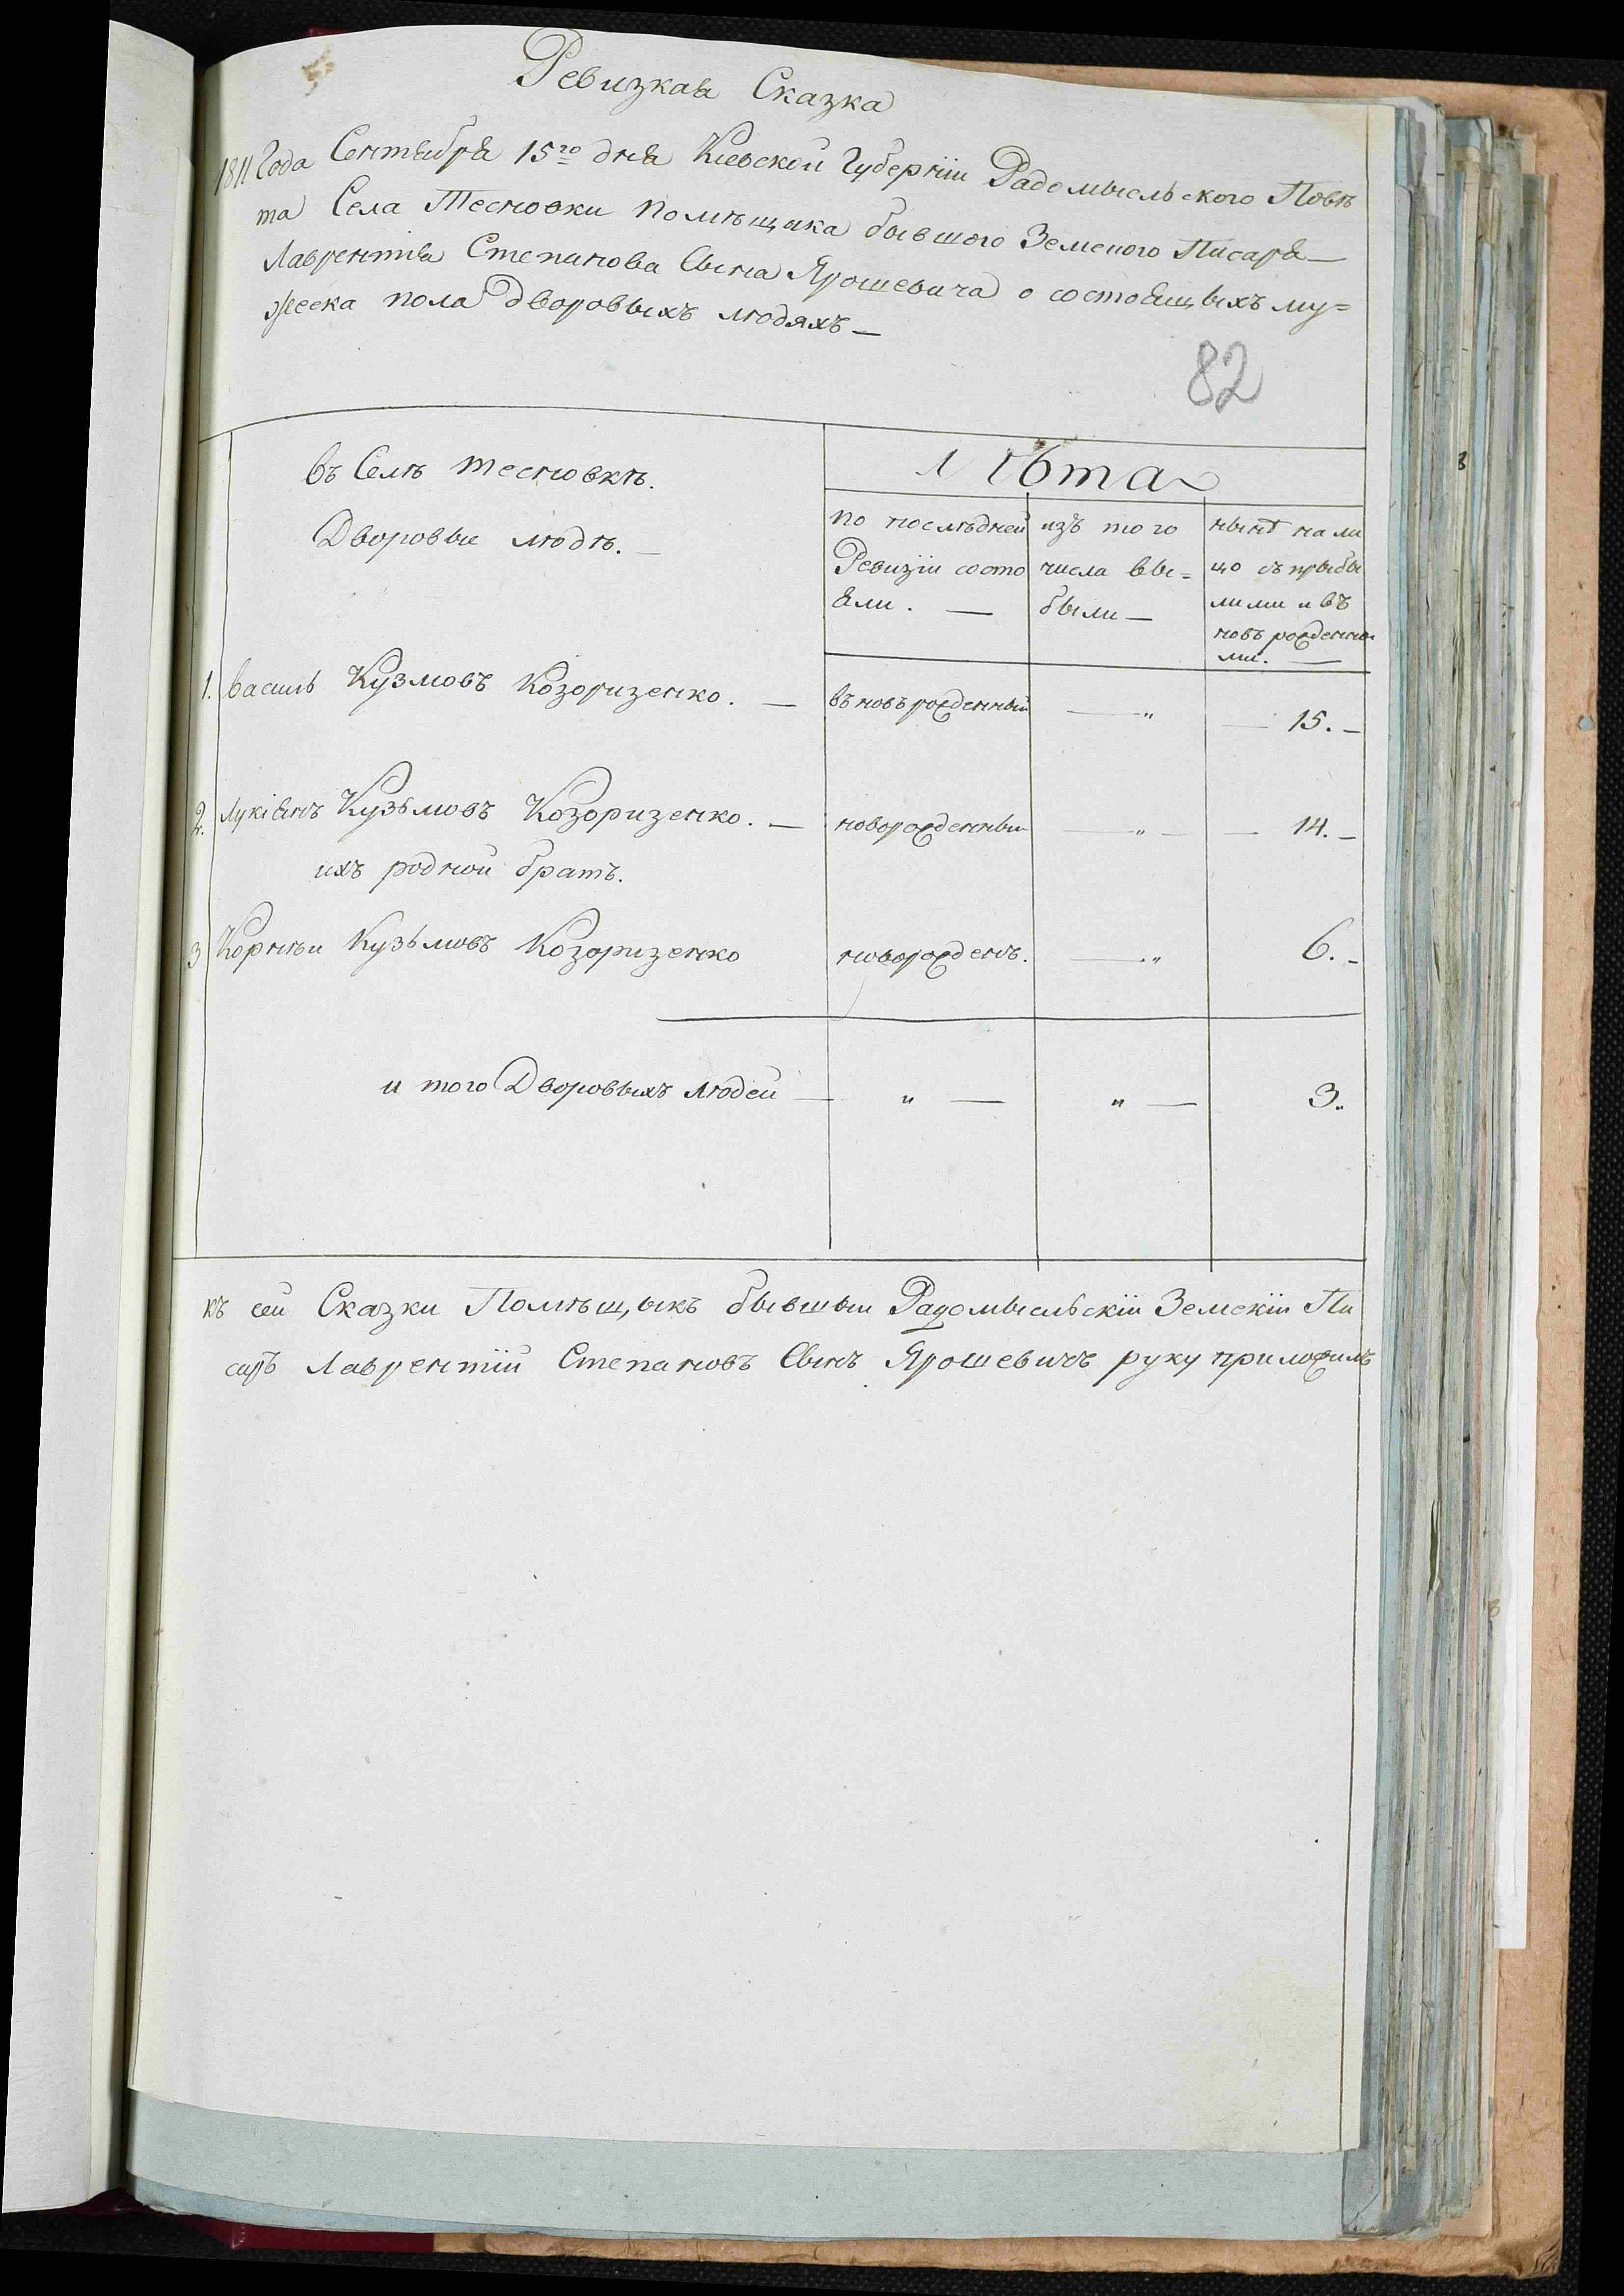 Ревизкая Сказка
1811 Года Сентября 15го дня Киевской Губернїи Радомысльского Повѣ
та Села Тесновки помѣщика бывшого Земского Писаря —
Лаврентія Степанова Сына Ярошевича о состоящыхъ му=
жеска пола Дворовыхъ людяхъ —
82
въ Селѣ тесновкѣ.
Дворовые людѣ. —
Лѣта
по послѣдней Ревизїи состо яли. —
изъ того числа вы= были —
нынѣ на ли цо съ прыбы лими и въ новь рожденны ми. —
1. василь Кузмовъ Козоризенко. — въ новь рожденный — „ — 15. —
2. Лукіянъ Кузьмовъ Козоризенко. — новорожденный — „ — — 14. —
ихъ родной братъ.
3 Корнѣи Кузьмовъ Козоризенко новорожденъ. — „ 6. —
и того Дворовыхъ людей — „ — „ — 3.
къ сей Сказки Помѣщыкъ бывшый Радомысльскїй Земскїй Пи
сарь Лаврентїй Степановъ Сынъ Ярошевичъ руку приложилъ